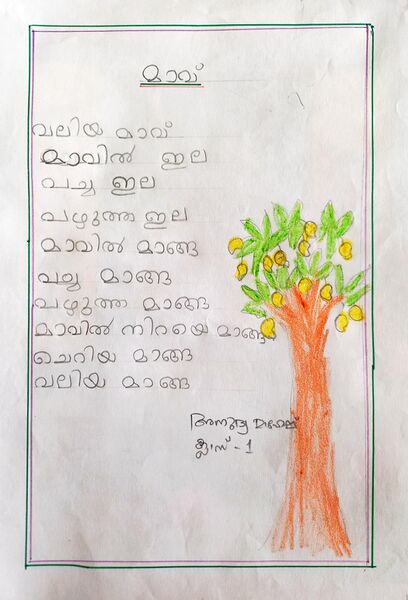 മാവ്
വലിയ മാവ്
മാവിൽ ഇല
പച്ച ഇല
പഴുത്ത ഇല
മാവിൽ മാങ്ങ
പച്ച മാങ്ങ
പഴുത്ത മാങ്ങ
മാവിൽ നിറയെ മാങ്ങ
ചെറിയ മാങ്ങ
വലിയ മാങ്ങ
ക്ലാസ് - 1